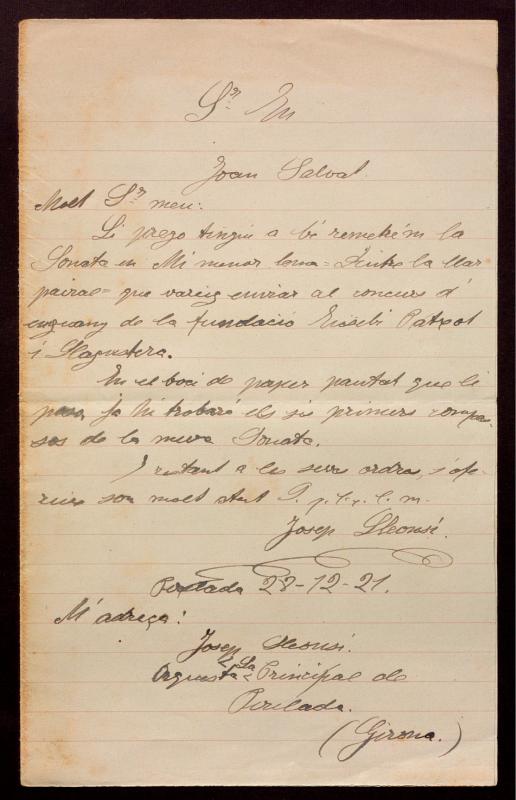 Sr. En
Joan Salvat.
Molt Sr. meu:
Li prego tingui a bé remetre'm la
Sonata en Mi menor lema = la llar
pairal = que vareig enviar al concurs d'
enguany de la fundació Eusebi Patxot
i Llagustera.
En el boci de paper pautat que li
poso ja hi trobará els sis primers compa-
sos de la meva Sonata.
I restant a les seves ordra, s'ofe-
reix son molt atent
Josep Lleonsí.
28-12-21.
M'adreça:
Josep Lleonsí.
Orquesta "La Principal de
Perelada.
(Girona.)